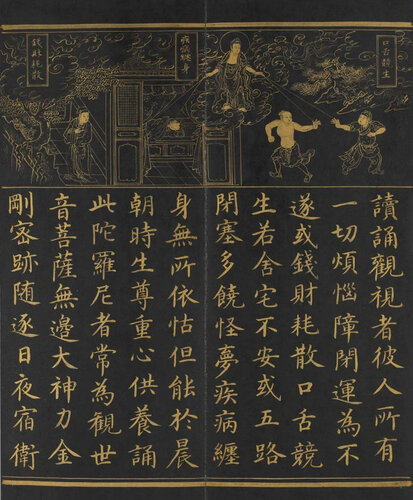 口舌競生
疾病纏身
錢財耗散
讀誦觀視者彼人所有
一切煩惱障閉運為不
遂或錢財耗散口舌競
生若舍宅不安或五路
閉塞多饒怪夢疾病纏
身無所依怙但能於晨
朝時生尊重心供養誦
此陀羅尼者常為觀世
音菩薩無邊大神力金
剛宻跡随逐日夜宿衛